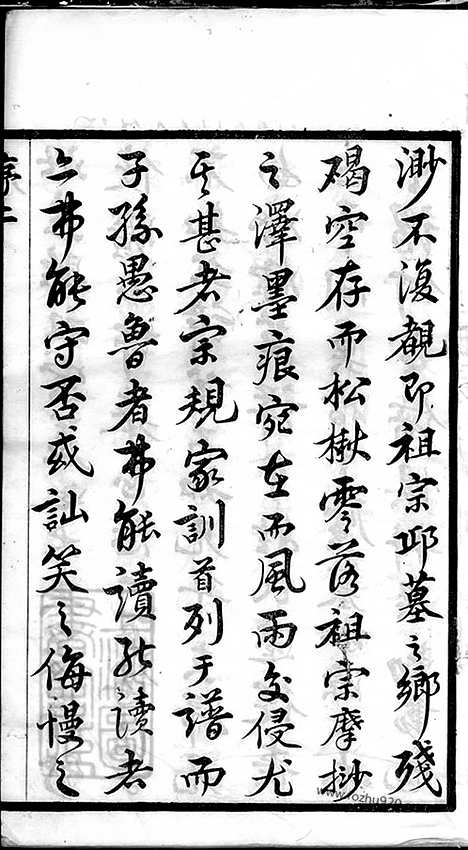 渺不復覩即祖宗邱墓之鄉殘
碣空存而松楸零落祖宗摩抄
之澤墨痕宛在而風雨交侵尤
其甚者宗規家訓首列于譜而
子孫愚魯者弗能讀能讀者
亦弗能守否或訕笑之侮慢之
序二